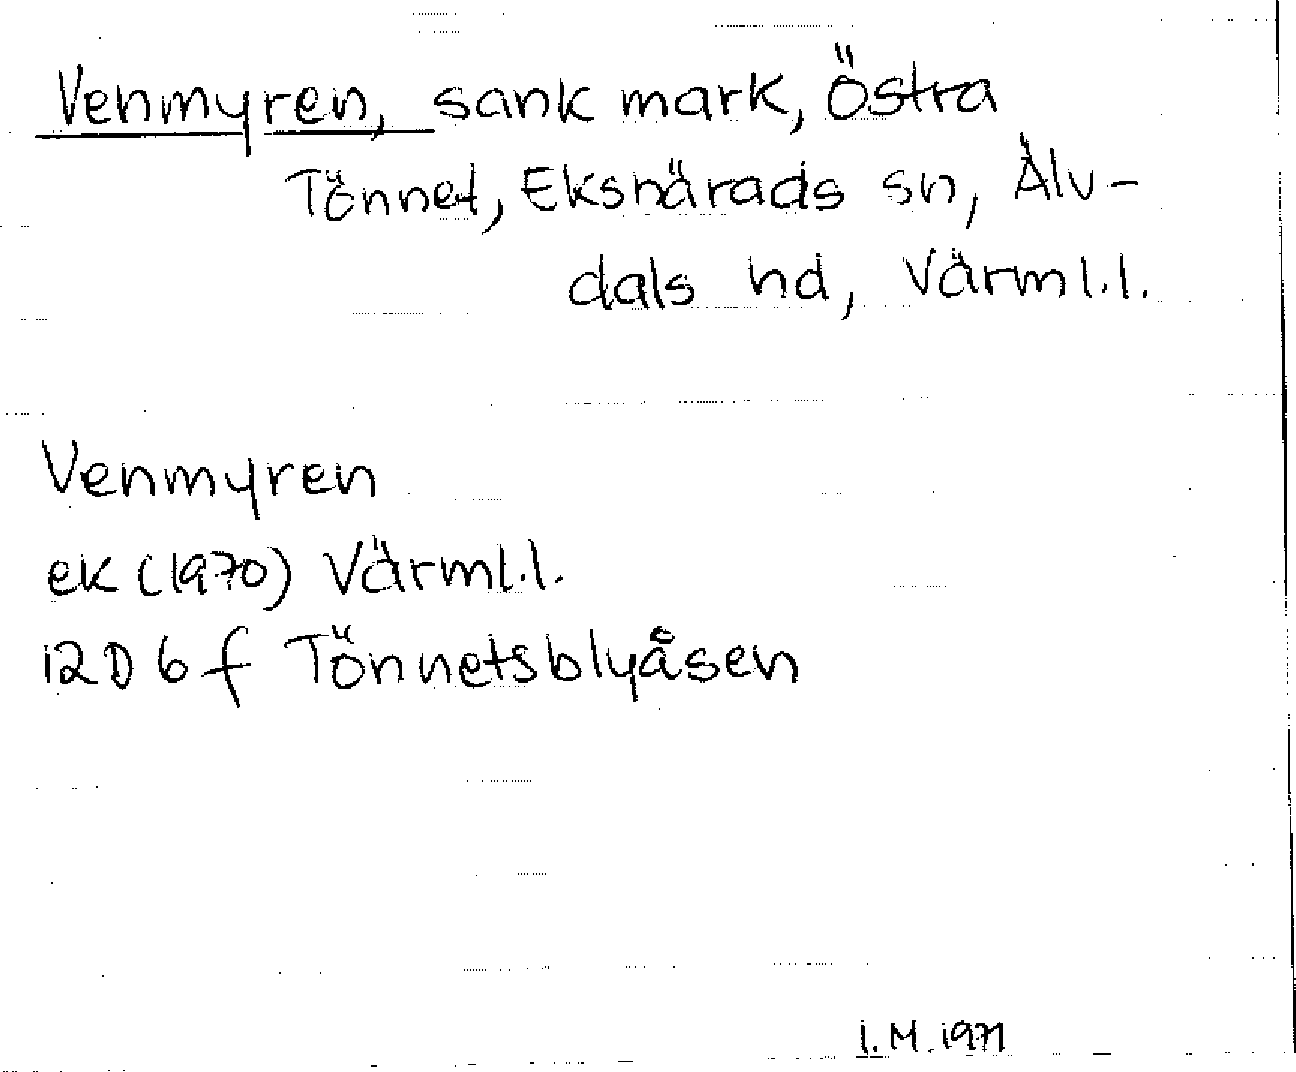 Venmyren, sank mark, Östra
Tönnet, Ekshärads sn, Älv-
dals hd, Värml.l.
Venmyren
ek (1970) Värml.l.
12D 6f Tönnetsblyåsen
I.M. 1971